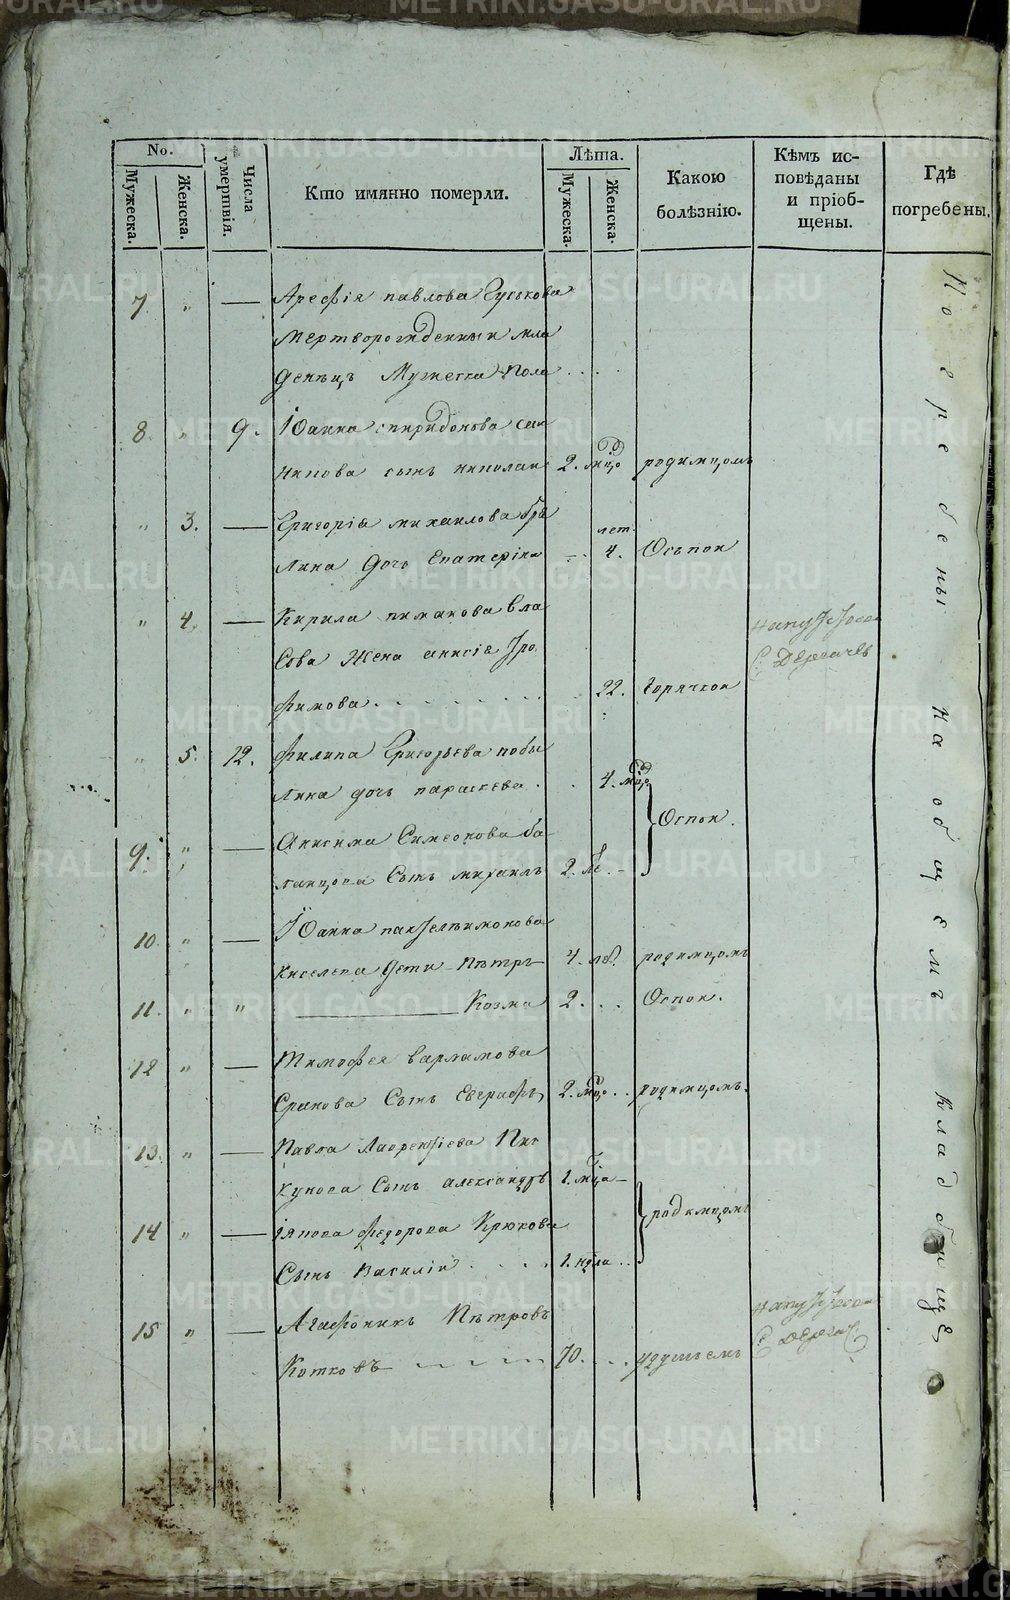 METRIKI.GASO-URAL.RU
No.
Мужеска.
Женска.
Числа умертвія.
Кто имянно померли.
Лѣта.
Мужеска.
Женска.
Какою болѣзнію.
Кѣмъ исповѣданы и пріобщены.
Гдѣ погребены.
7 " — Арефія павлова Гускова
мертворожденный мла
денецъ Мужеска пола . . . .
8. " 9. Іоанна спиридонова
сынъ николаи 2. мцо родимцомъ
" 3. — Григоріа михаилова
лина дочь Екатеріна — . лет. 4. Оспои
" 4. — Кирила пиманова Вла
сова Жена анисіа Тро
фимова . . . . . . 22. Горячкои
С: Дергачевъ
" 5. 12. Филипа Григорьева побы
лина дочь параскева . . 4. мцо
Оспои.
9. " — Анисима Симеонова ба
ланцова Сынъ михаилъ 2. ле.
10. " — Іоанна пантелеимонова
Киселева дети Пѣтръ 4. лѣ. родимцомъ
11. " " — Козма 2. . . Оспои.
12 " — Тимофея варламова
Сынъ Евграфъ 2. мцо. . родимцомъ.
13. " — Павла Лаврентіева Пи
кунова Сынъ александръ 1. мца —
родимцомъ
14 " — Іякова федорова Крюкова
Сынъ Василіи . . . . 1. ндла . .
15 " — Агафоникъ Пѣтровъ
Котковъ — — — — 70. . . . удушьемъ
Погребены на общемъ кладбище